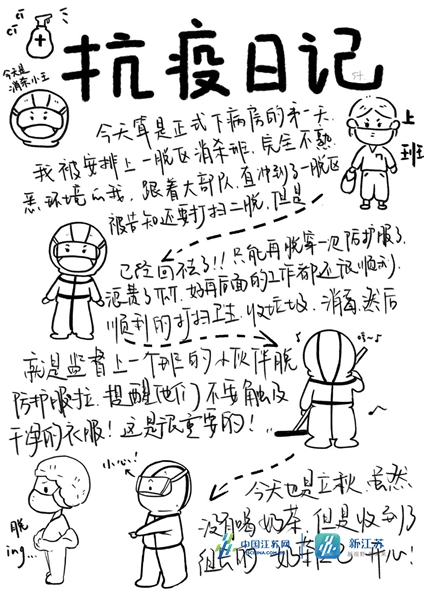 ci ci
抗疫日记
今天是
消杀小王
上班
今天算是正式下病房的第一天
我被安排上一脱区消杀班,完全不熟
悉环境的我,跟着大部队,直冲到了一脱区
被告知还要打扫二脱,但是
已经回不去了!!只能再脱穿一次防护服了
浪费了TVT,好再后面的工作都还很顺利.
顺利的打扫卫生.收垃圾.消毒.然后
就是监督上一个班的小伙伴脱
防护服拉.提醒他们不要触及
干净的衣服!这是很重要的!
小心!
脱
ing...
今天也是立秋.虽然
没有喝奶茶.但是收到了
组长的 奶茶 开心!
中国江苏网
JSCHINA.COM.CN
新江苏